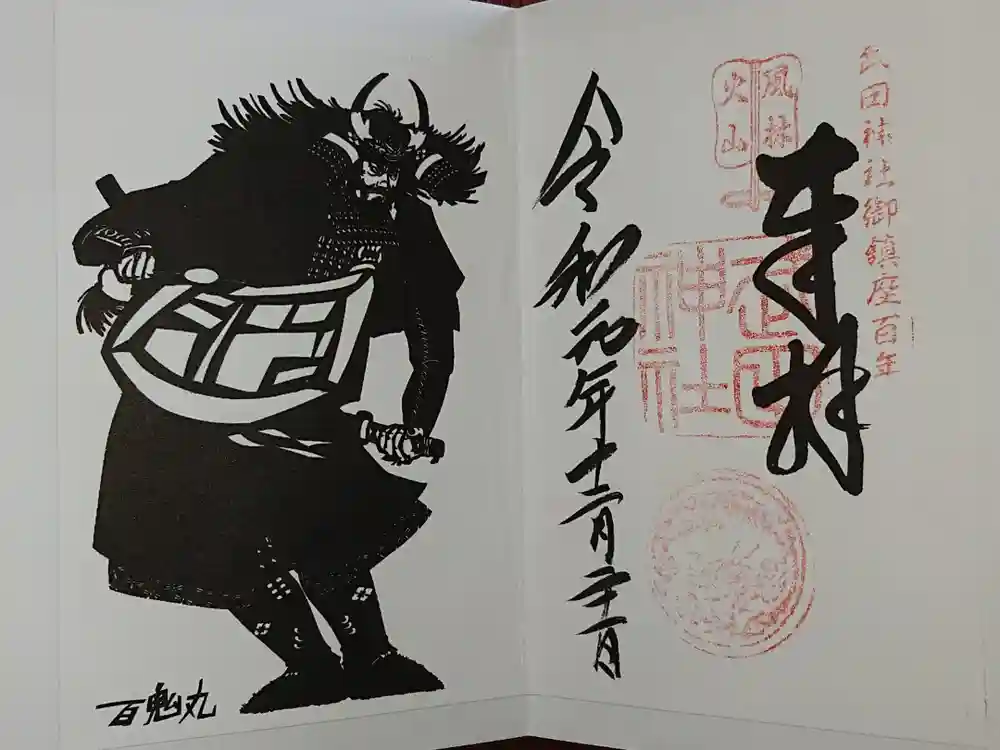 武田神社御鎮座百年
奉拝
風林
火山
武田
神社
令和元年十二月二十一日
百鬼丸